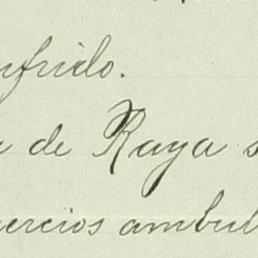 nfrido.
a de Raya s
ercios ambul